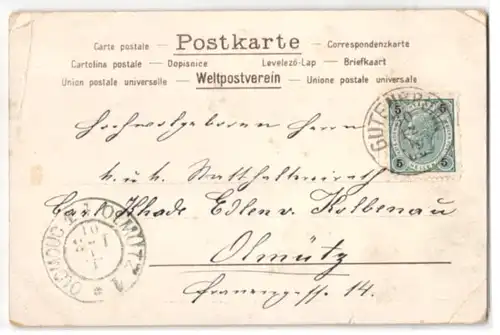 Carte postale — Postkarte — Correspondenzkarte
Cartolina postale — Dopisnice Levelező-Lap — Briefkaart
Union postale universelle — Weltpostverein — Unione postale universale
5 5
5 5
GUTENBRUNN
Hochwolgeboren Herrn
k. u. k. Statthaltereirath
Carl Edlen v. Kolbenau
Olmütz
Franzengasse 14.
OLMÜTZ 1
OLOMOUC